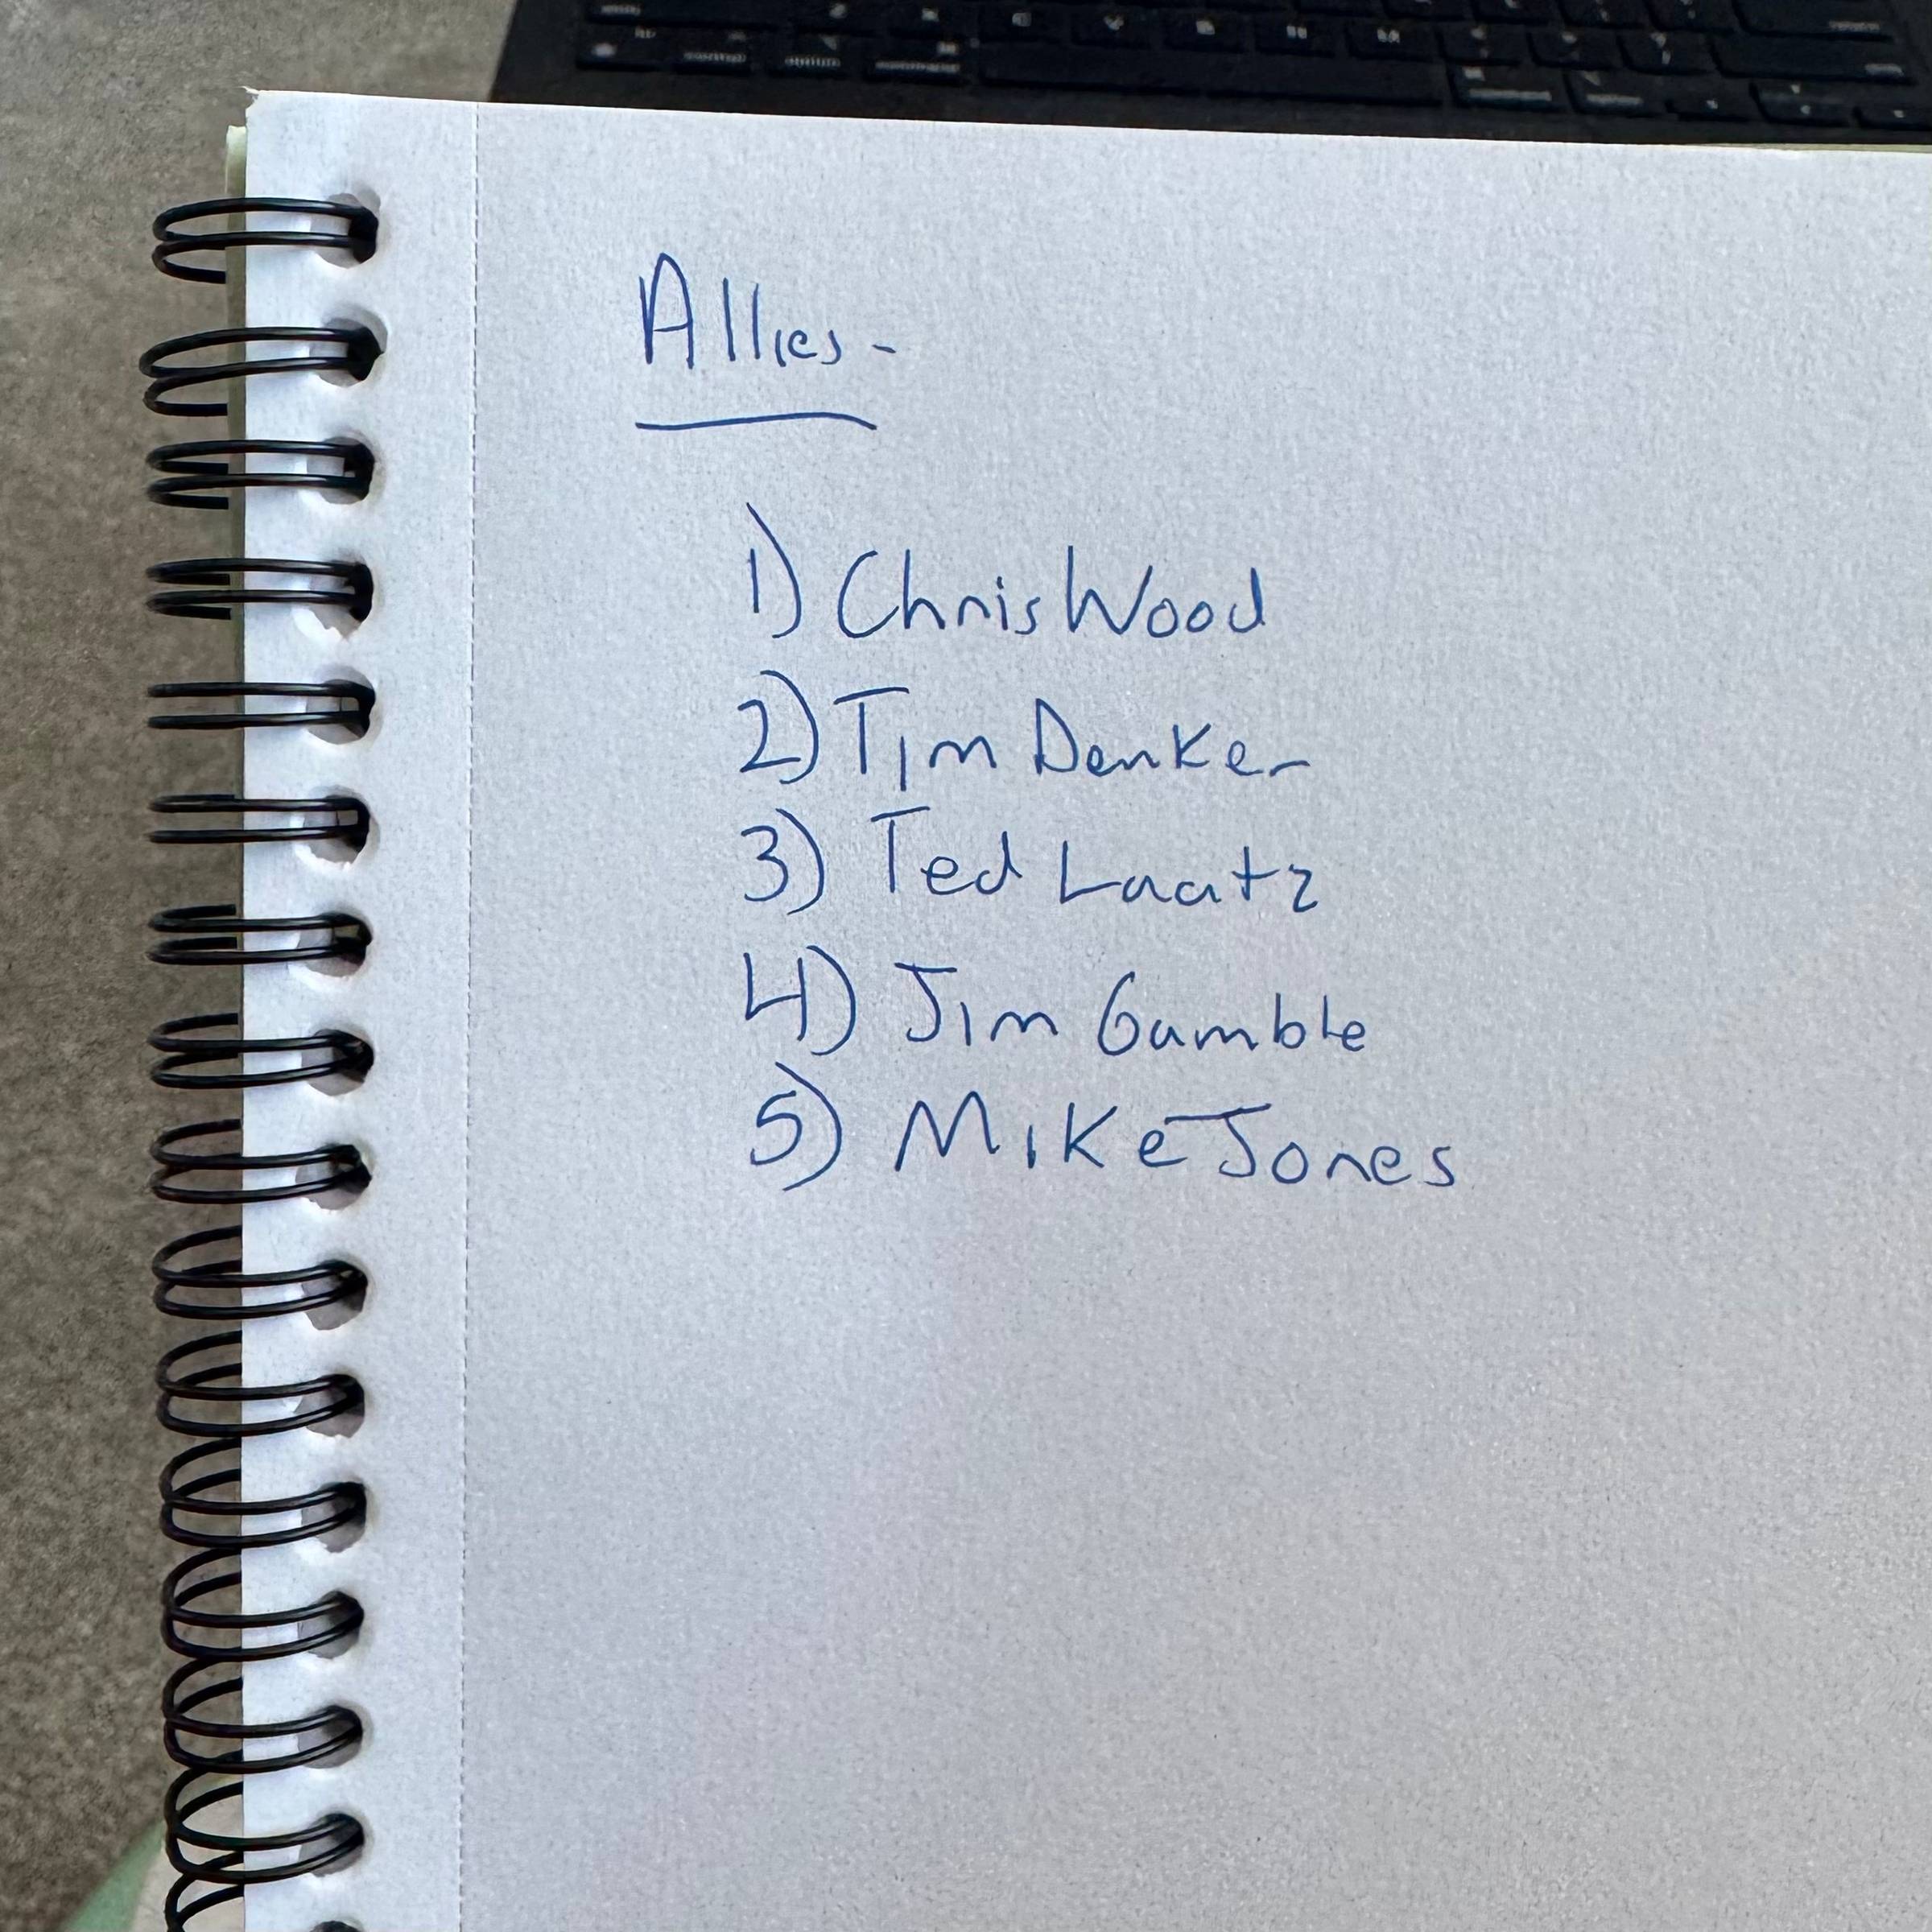 Allies -
1) Chris Wood
2) Tim Denker
3) Ted Laatz
4) Jim Gamble
5) Mike Jones